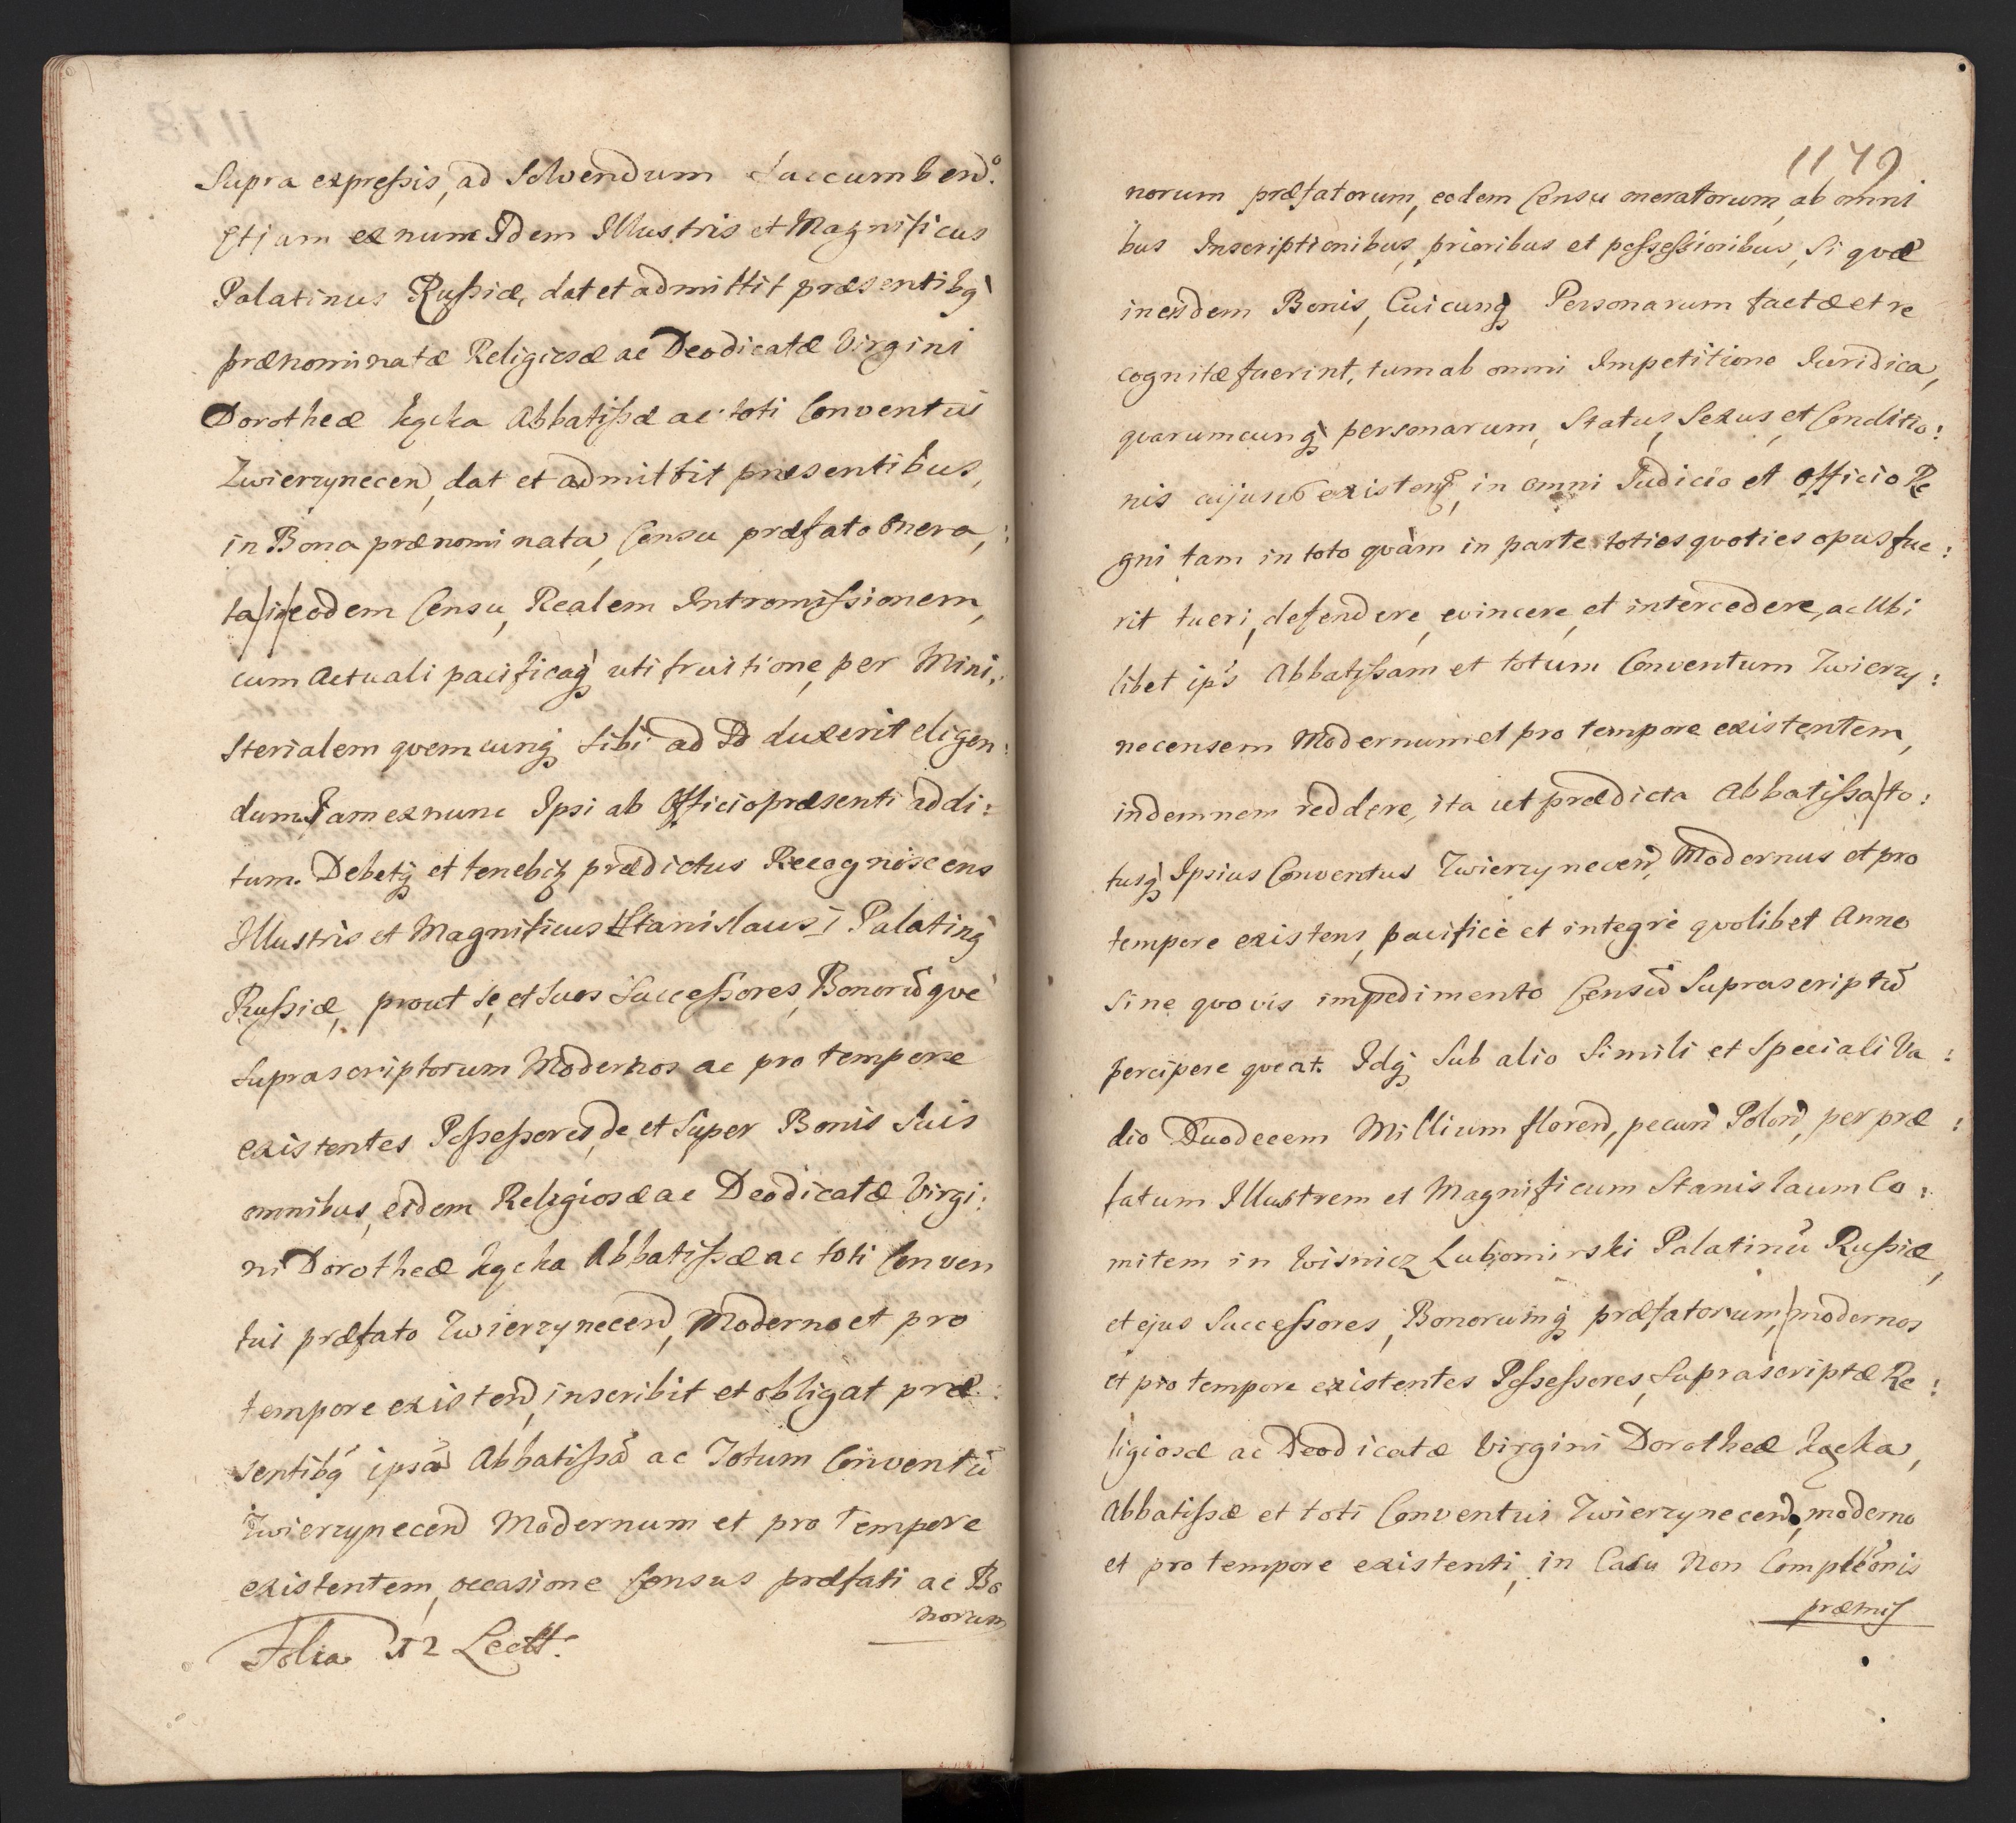 Supra expressis, ad Solvendum Succumbend⁰.
Et jam ex nunc Idem Illustris et Magnificus
Palatinus Russiæ, dat et admittit præsentibq
prænominatæ Religiosæ ac Deodicatæ Virgini
Dorotheæ Kącka Abbatissæ ac toti Conventui
Zwierzynecen, dat et admittit præsentibus,
in Bona prænominata, Censu præfato Onera,:
ta/in/eodem Censu, Realem Intromissionem,
cum Actuali pacificaq uti fruitione, per Mini,:
sterialem quemcunq Sibi ad Id duxerit eligen:
dum Jam ex nunc Ipsi ab Officio præsenti addi:
tum. Debetq et tenebitz prædictus Recognoscens
Illustris et Magnificus Stanislaus Palatinq
Russiæ, prout se, et suos Successores, Bonorūque
suprascriptorum Modernos ac pro tempore
existentes Possessores, de et Super Bonis Suis
omnibus, eidem Religiosæ ac Deodicatæ Virgi:
ni Dorotheæ Kącka Abbatissæ ac toti Conven
tui præfato Zwierzynecen, Moderno et pro
tempore existen, inscribit et obligat præ:
sentibq ipsā Abbatissā ac Totum Conventū
Zwierzynecen Modernum et pro Tempore
existentem, occasione Census præfati ac Bo
norum
Folia 12 Lectt.
1179
norum præfatorum, eodem Censu oneratorum, ab omni
bus Inscriptionibus, prioribus et possessionibus, Si quæ
in eisdem Bonis, Cuicunq Personarum factæ et re
cognitæ fuerint, tum ab omni Impetitione Juridica,
quarumcunq personarum, Status, Sexus, et Conditio:
nis cujusvis existen, in omni Judicio et Officio Re
gni tam in toto quàm in parte toties quoties opus fue:
rit tueri, defendere, evincere, et intercedere, ac Ubi
libet ip's Abbatissam et totum Conventum Zwierzy:
necensem Modernum et pro tempore existentem,
indemnem reddere, ita ut prædicta Abbatissa/to:
tusq Ipsius Conventus Zwierzynecen, Modernus et pro
tempore existens, pacificè et integrè quolibet Anno
Sine quovis impedimento Censū Suprascriptū
percipere queat. Idq Sub alio Simili et Speciali Va:
dio Duodecem Millium floren, pecun Polon, per præ:
fatum Illustrem et Magnificum Stanislaum Co:
mitem in Wisnicz Lubomirski Palatinū Russiæ,
et ejus Successores, Bonorumq præfatorum,/modernos
et pro tempore existentes Possessores, Suprascriptæ Re:
ligiosæ ac Deodicatæ Virgini Dorotheæ Kącka,
Abbatissæ et toti Conventui Zwierzynecen, moderno
et pro tempore existenti, in Casu Non Completionis
præmis